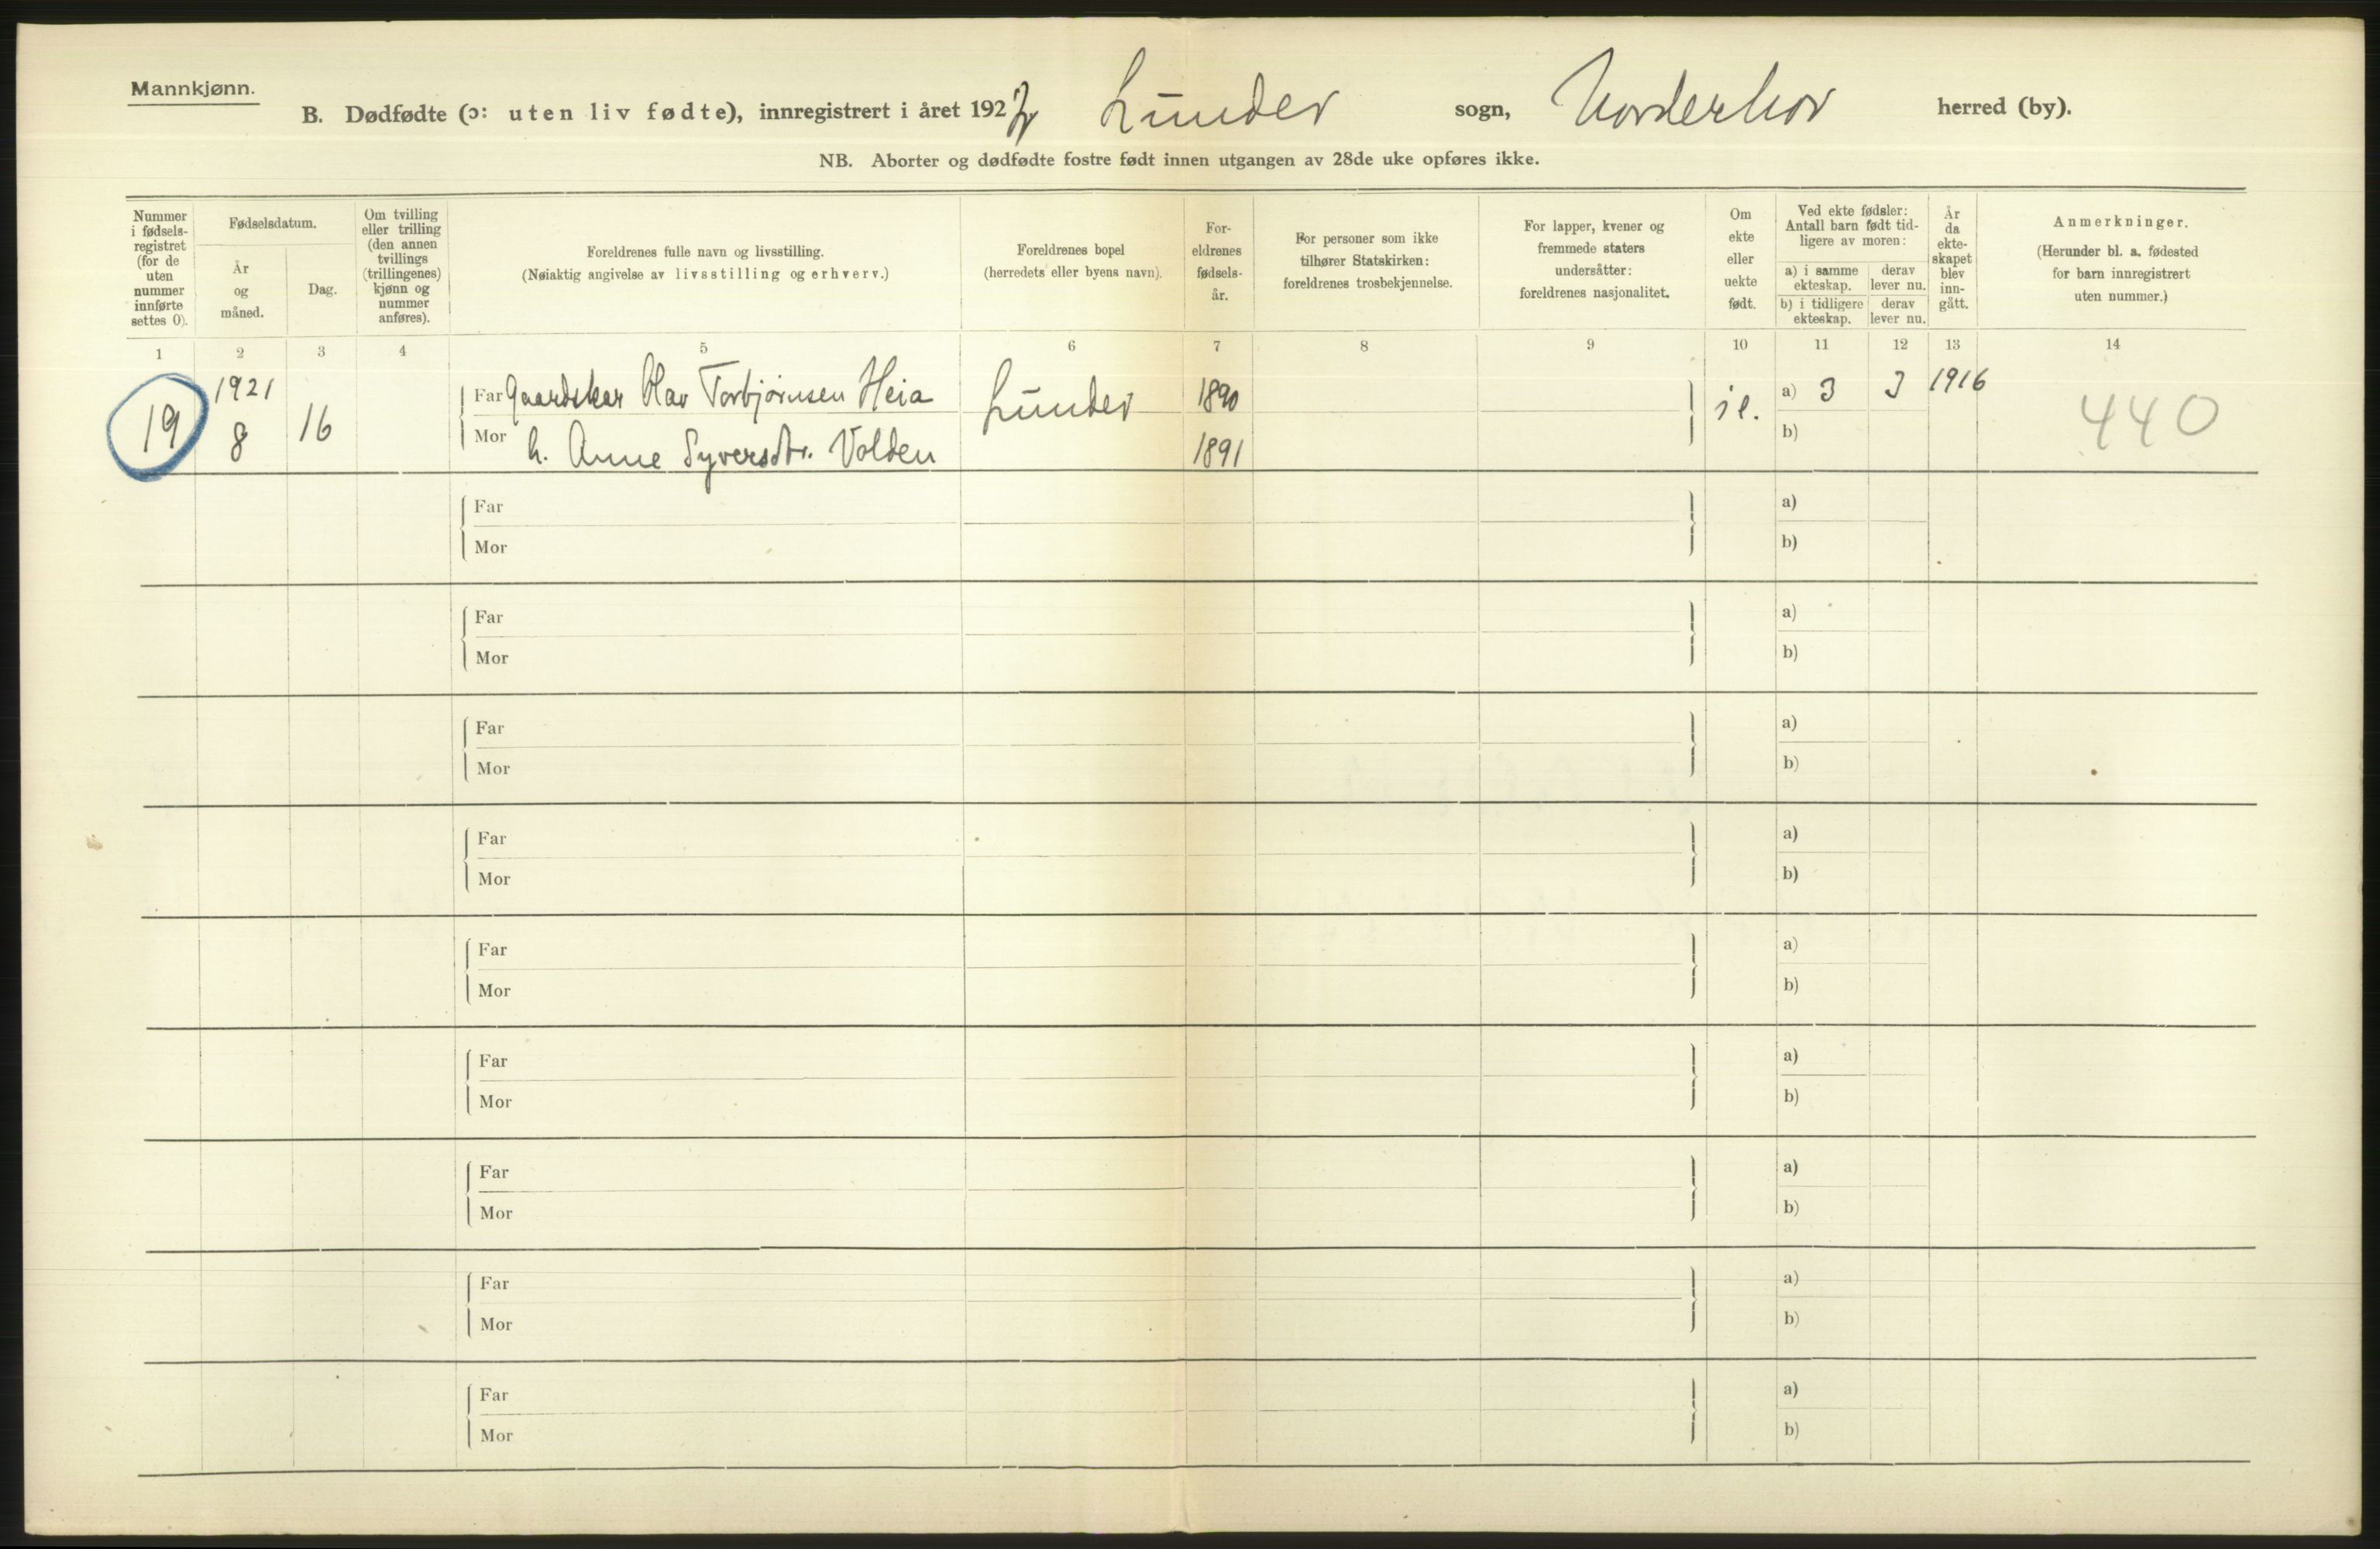 Mannkjønn.
B. Dødfødte (ɔ: uten liv fødte), innregistrert i året 192 Lunder sogn, Norderhov herred (by).
NB. Aborter og dødfødte fostre født innen utgangen av 28de uke opføres ikke.
Nummer i fødsels-registret (for de uten nummer innførte settes 0).
Fødselsdatum.
År og måned.
Dag.
Om tvilling eller trilling (den annen tvillings (trillingenes) kjønn og nummer anføres).
Foreldrenes fulle navn og livsstilling.
(Nøiaktig angivelse av livsstilling og erhverv.)
Foreldrenes bopel
(herredets eller byens navn).
For-eldrenes fødsels-år.
For personer som ikke tilhører Statskirken: foreldrenes trosbekjennelse.
For lapper, kvener og fremmede staters undersåtter: foreldrenes nasjonalitet.
Om ekte eller uekte født.
Ved ekte fødsler: Antall barn født tid-ligere av moren:
a) i samme ekteskap.
derav lever nu.
b) i tidligere ekteskap.
derav lever nu.
År da ekte-skapet blev inn-gått.
Anmerkninger.
(Herunder bl. a. fødested for barn innregistrert uten nummer.)
1 2 3 4 5 6 7 8 9 10 11 12 13 14
19 1921 8 16
Far Olav Torbjørnsen Heia Lunder 1890
Mor h. Anne Syversdtr. Volden 1891
a) 3 3 1916
b)
440
Far a)
Mor b)
Far a)
Mor b)
Far a)
Mor b)
Far a)
Mor b)
Far a)
Mor b)
Far a)
Mor b)
Far a)
Mor b)
Far a)
Mor b)
Far a)
Mor b)